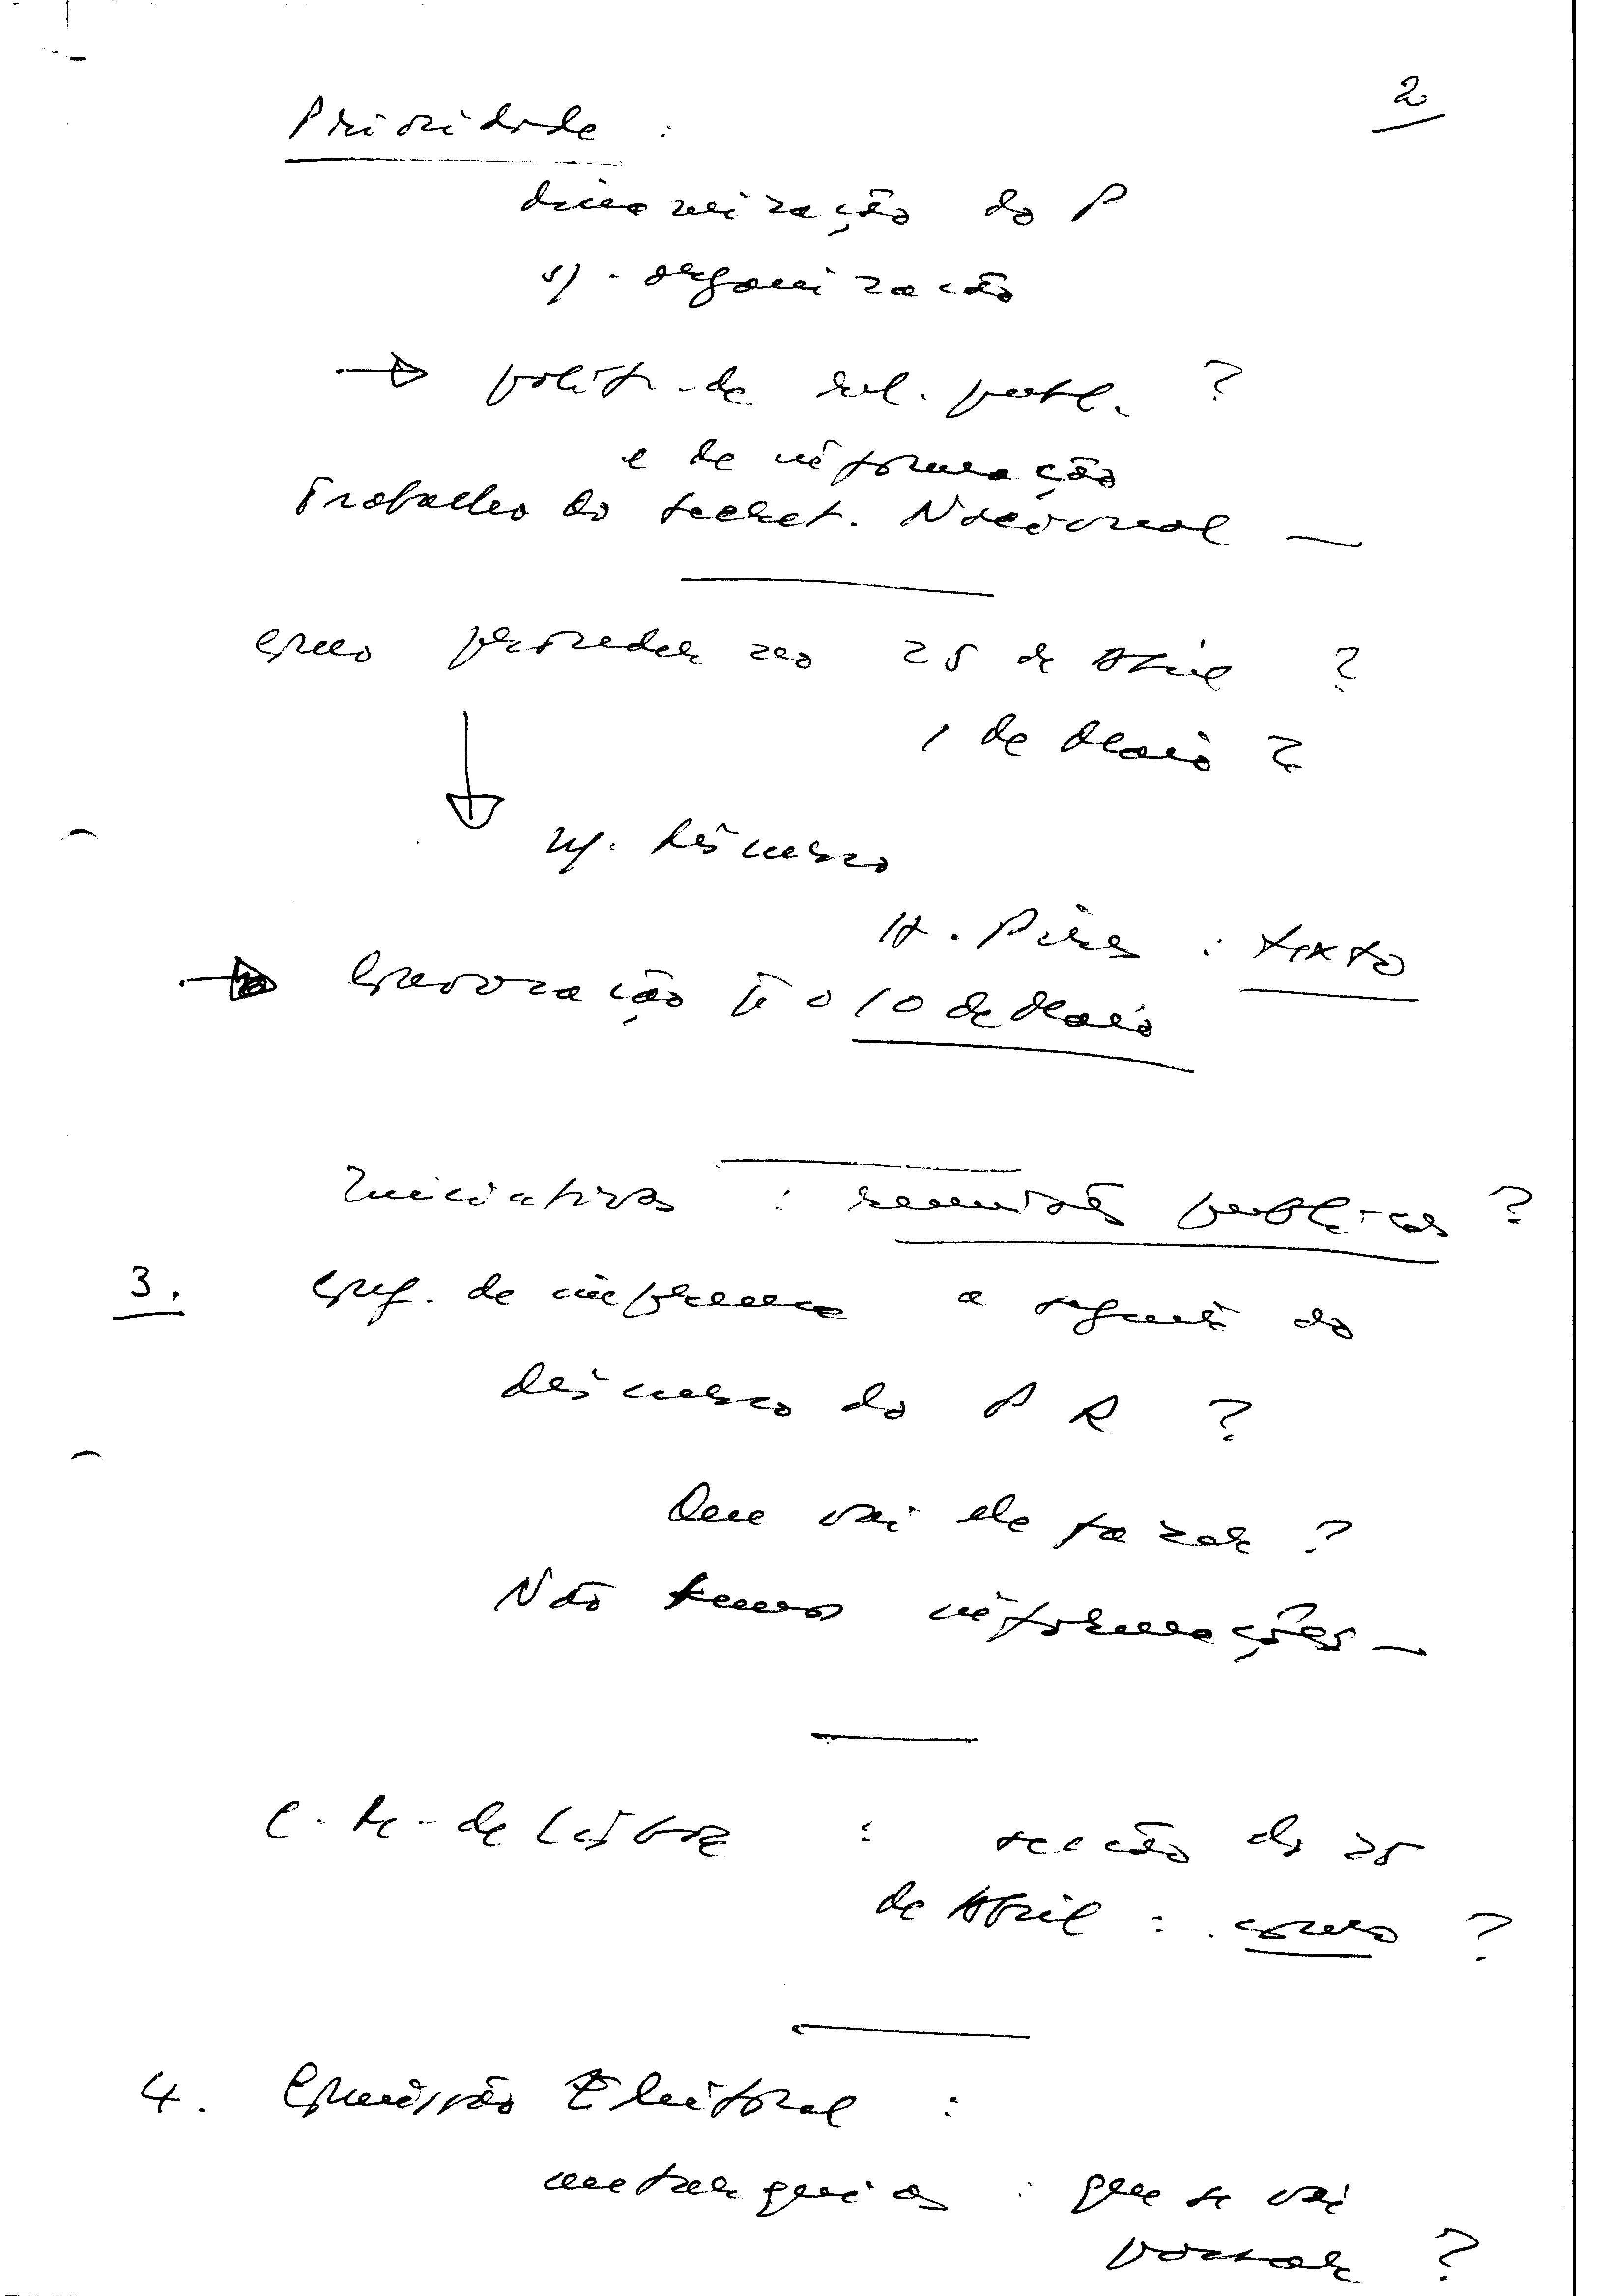 2
Prioridade :
dinamização do P
s/. organização
→ polít. de rel. publ. ?
e de informação
Trabalho do Secret. Nacional —
como proceder no 25 de Abril ?
1 de Maio ?
discurso
H. Pires : texto
→ Convocação p o 10 de Maio
Iniciativas : reuniões públicas ?
3. Conf. de imprensa a seguir ao
discurso do P R ?
Que vai ele fazer ?
Não temos informações —
C. M. de Lisboa : sessão do 25
de Abril : como ?
4. Comissão Eleitoral :
autarquias : que se vai
passar ?